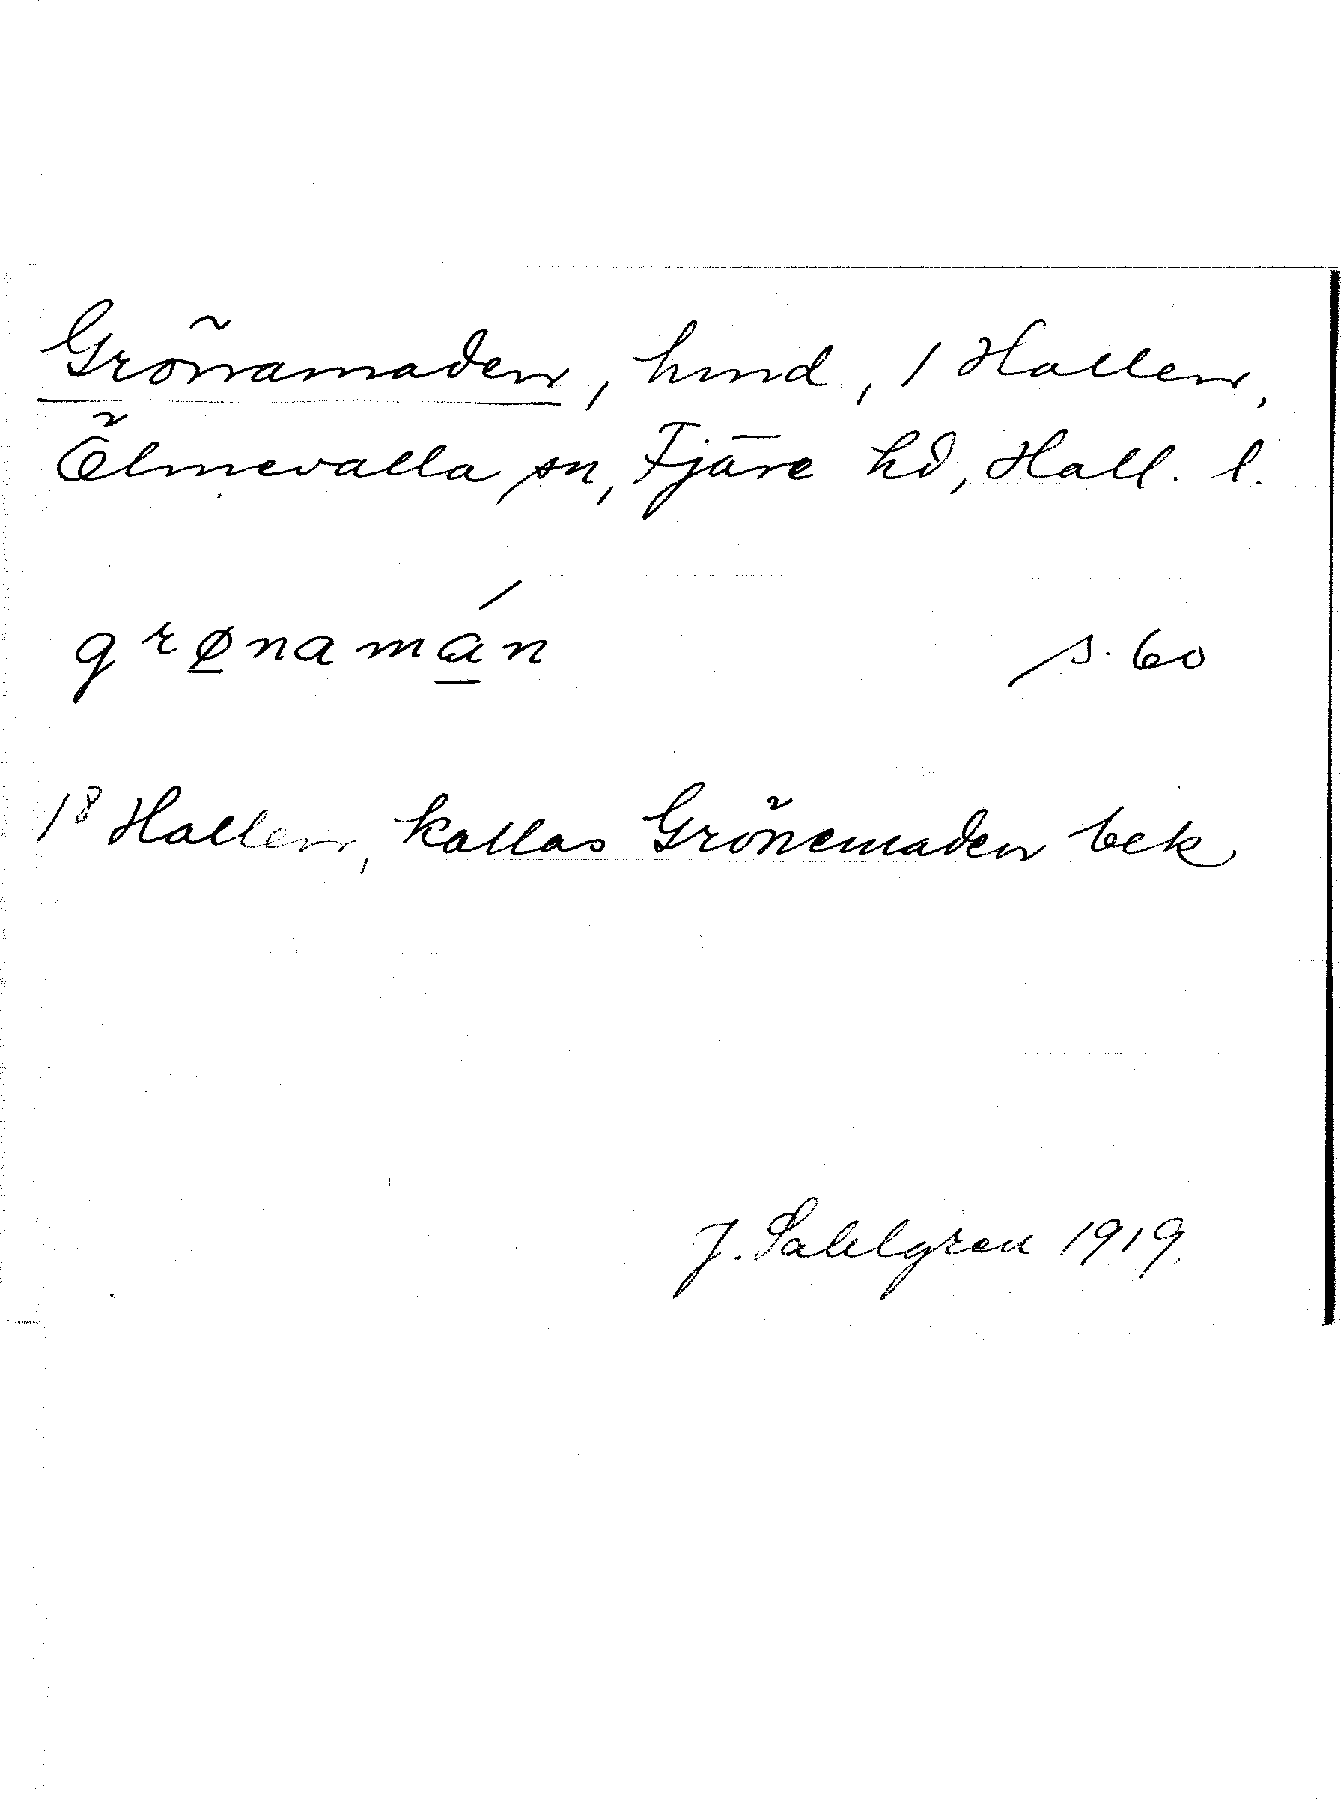 Grönamaden, hmd, 1 Hallen,
Ölmevalla sn, Fjäre hd, Hall. l.
grønamán s. 60
1⁸ Hallen, kallas Grönemaden bek
J. Sahlgren 1919.